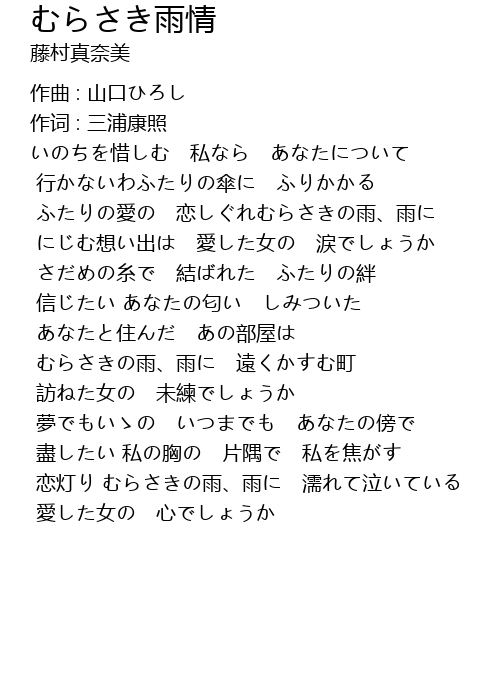 むらさき雨情
藤村真奈美
作曲 : 山口ひろし
作词 : 三浦康照
いのちを惜しむ　私なら　あなたについて
行かないわふたりの傘に　ふりかかる
ふたりの愛の　恋しぐれむらさきの雨、雨に
にじむ想い出は　愛した女の　涙でしょうか
さだめの糸で　結ばれた　ふたりの絆
信じたい あなたの匂い　しみついた
あなたと住んだ　あの部屋は
むらさきの雨、雨に　遠くかすむ町
訪ねた女の　未練でしょうか
夢でもいゝの　いつまでも　あなたの傍で
盡したい 私の胸の　片隅で　私を焦がす
恋灯り むらさきの雨、雨に　濡れて泣いている
愛した女の　心でしょうか